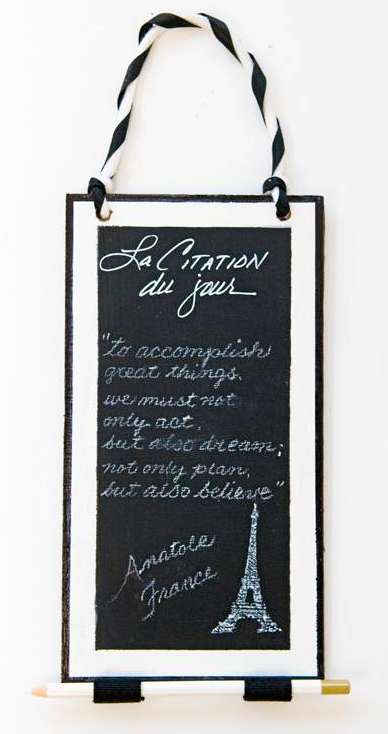 La CITATION
du jour
"to accomplish
great things,
we must not
only act,
but also dream;
not only plan,
but also believe"
Anatole
France